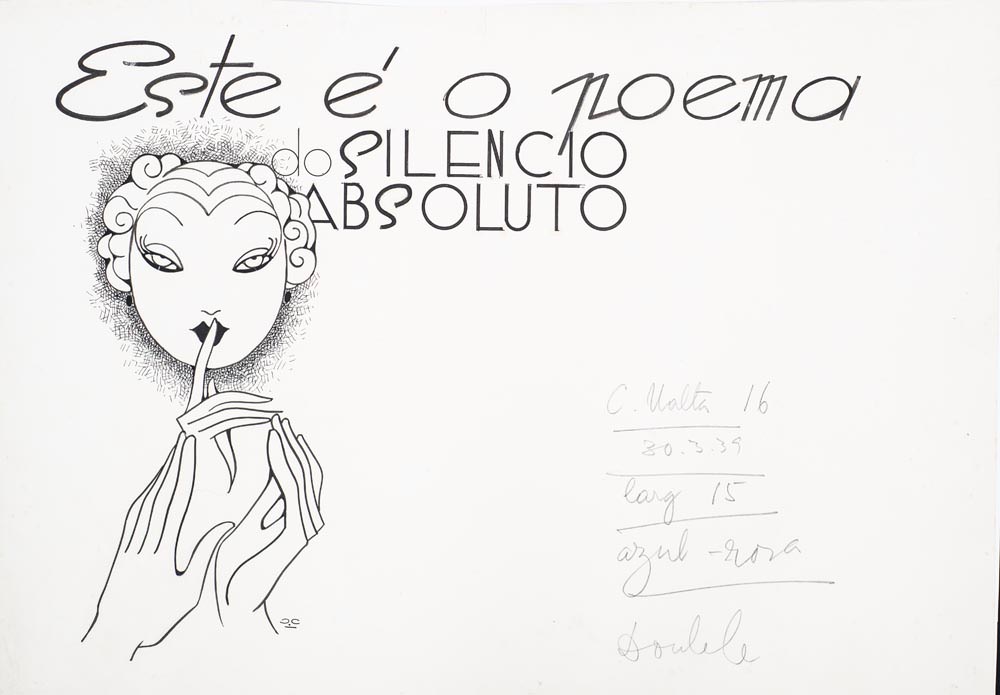 Este é o poema
do SILENCIO
ABSOLUTO
C. Malta 16
30.3.39
larg 15
azul - rosa
Double
O.C